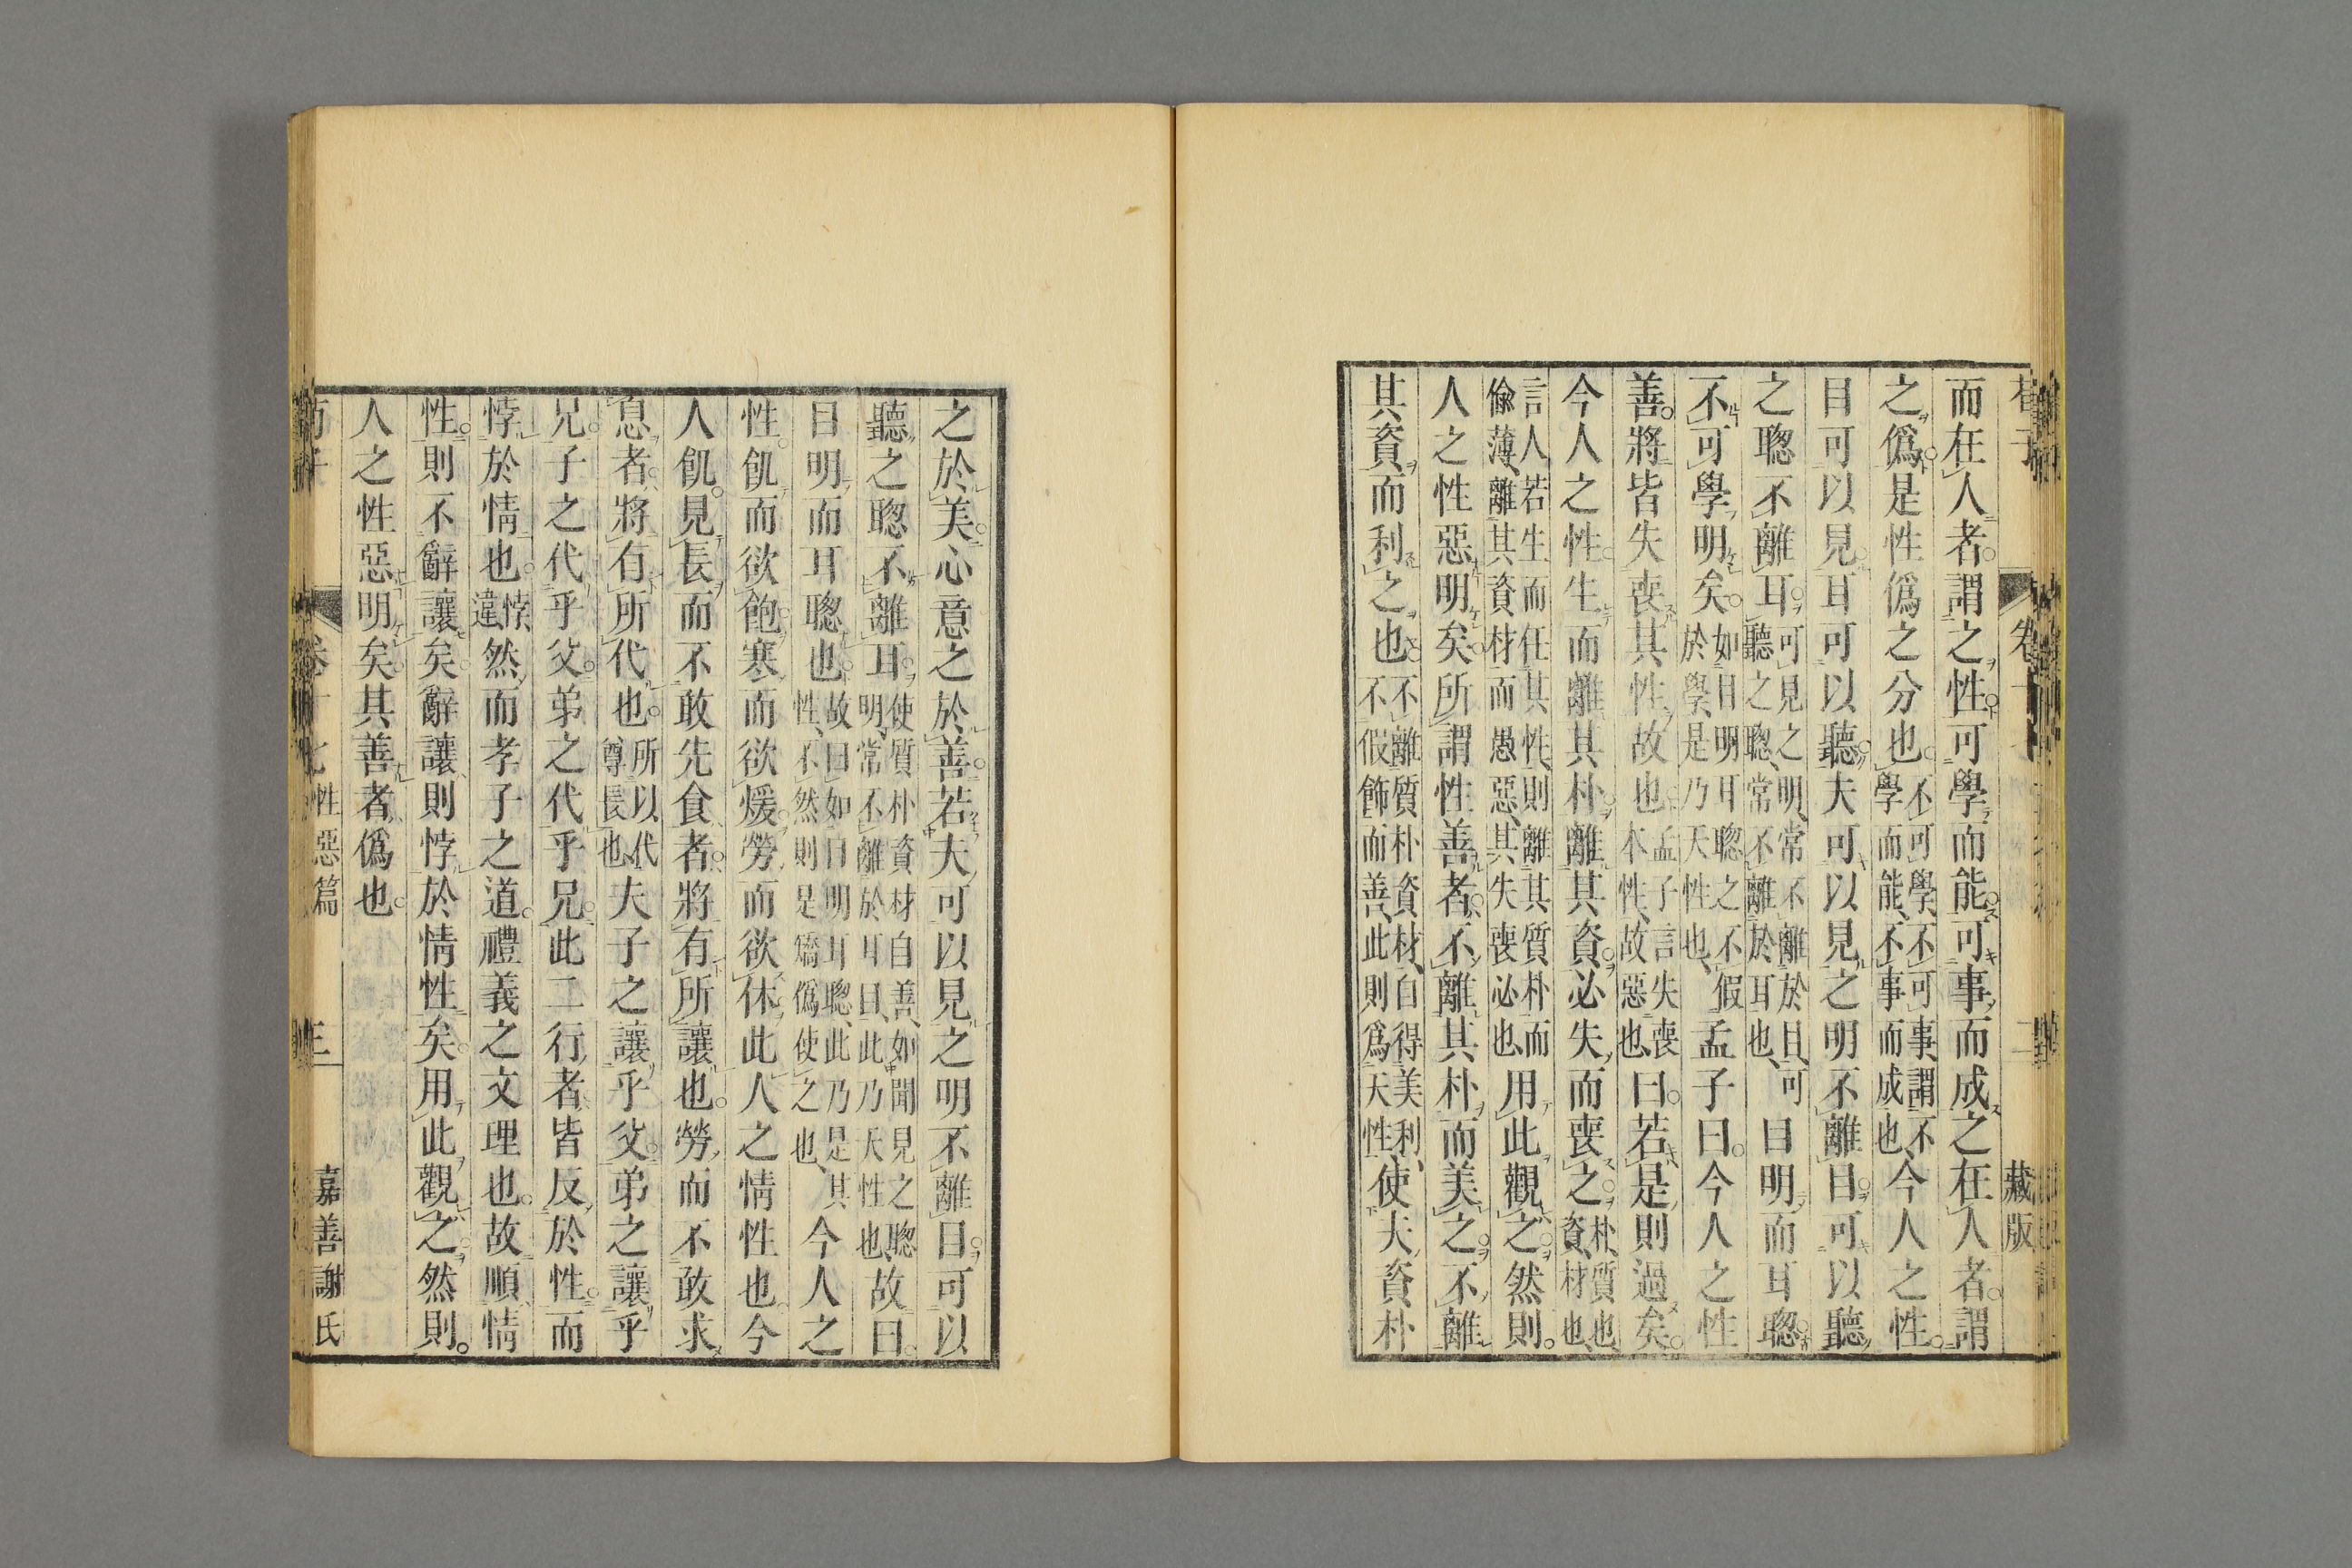 而在人者謂之性可學而能可事而成之在人者謂
之僞是性僞之分也不可學不可事謂不學而能不事而成也今人之性
目可以見耳可以聽夫可以見之明不離目可以聽
之聰不離耳可見之明常不離於目可聽之聰常不離於耳也目明而耳聰
不可學明矣如目明耳聰之不假於學是乃天性也孟子曰今人之性
善將皆失喪其性故也孟子言失喪本性故惡也曰若是則過矣
今人之性生而離其朴離其資必失而喪之朴質也資材也
言人若生而任其性則離其質朴而偷薄離其資材而愚惡其失喪必也用此觀之然則
人之性惡明矣所謂性善者不離其朴而美之不離
其資而利之也不離質朴資材自得美利不假飾而善此則爲天性使夫資朴
藏版
之於美心意之於善若夫可以見之明不離目可以
聽之聰不離耳使質朴資材自善如聞見之聰明常不離於耳目此乃天性也故曰
目明而耳聰也故曰如目明耳聰此乃是其性不然則是矯僞使之也今人之
性飢而欲飽寒而欲煖勞而欲休此人之情性也今
人飢見長而不敢先食者將有所讓也勞而不敢求
息者將有所代也所以代尊長也夫子之讓乎父弟之讓乎
兄子之代乎父弟之代乎兄此二行者皆反於性而
悖於情也悖違然而孝子之道禮義之文理也故順情
性則不辭讓矣辭讓則悖於情性矣用此觀之然則
人之性惡明矣其善者僞也
荀子 卷十七 性惡篇 三 嘉善謝氏